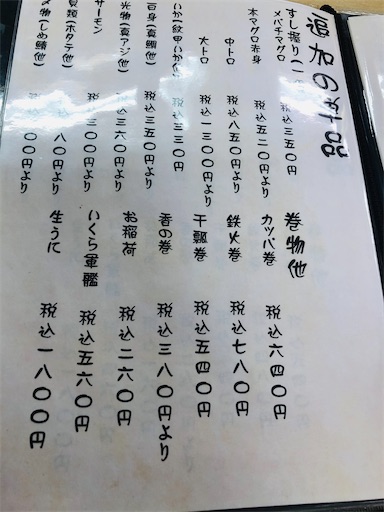 追加のお品
すし握り(一
メバチマグロ 税込三五〇円
本マグロ赤身 税込五二〇円より
中トロ 税込八五〇円より
大トロ 税込一三〇〇円より
いか(紋甲いか 税込三三〇円
白身(真鯛他) 税込三五〇円より
光物(真アジ他) 税込三六〇円より
サーモン 税込三〇〇円より
貝類(ホタテ他) 税込 八〇円より
物(しめ鯖他) 税込 〇〇円より
巻物他
カッパ巻 税込六四〇円
鉄火巻 税込七八〇円
干瓢巻 税込五四〇円
香の巻 税込三八〇円より
お稲荷 税込二六〇円
いくら軍艦 税込五六〇円
生うに 税込一八〇〇円